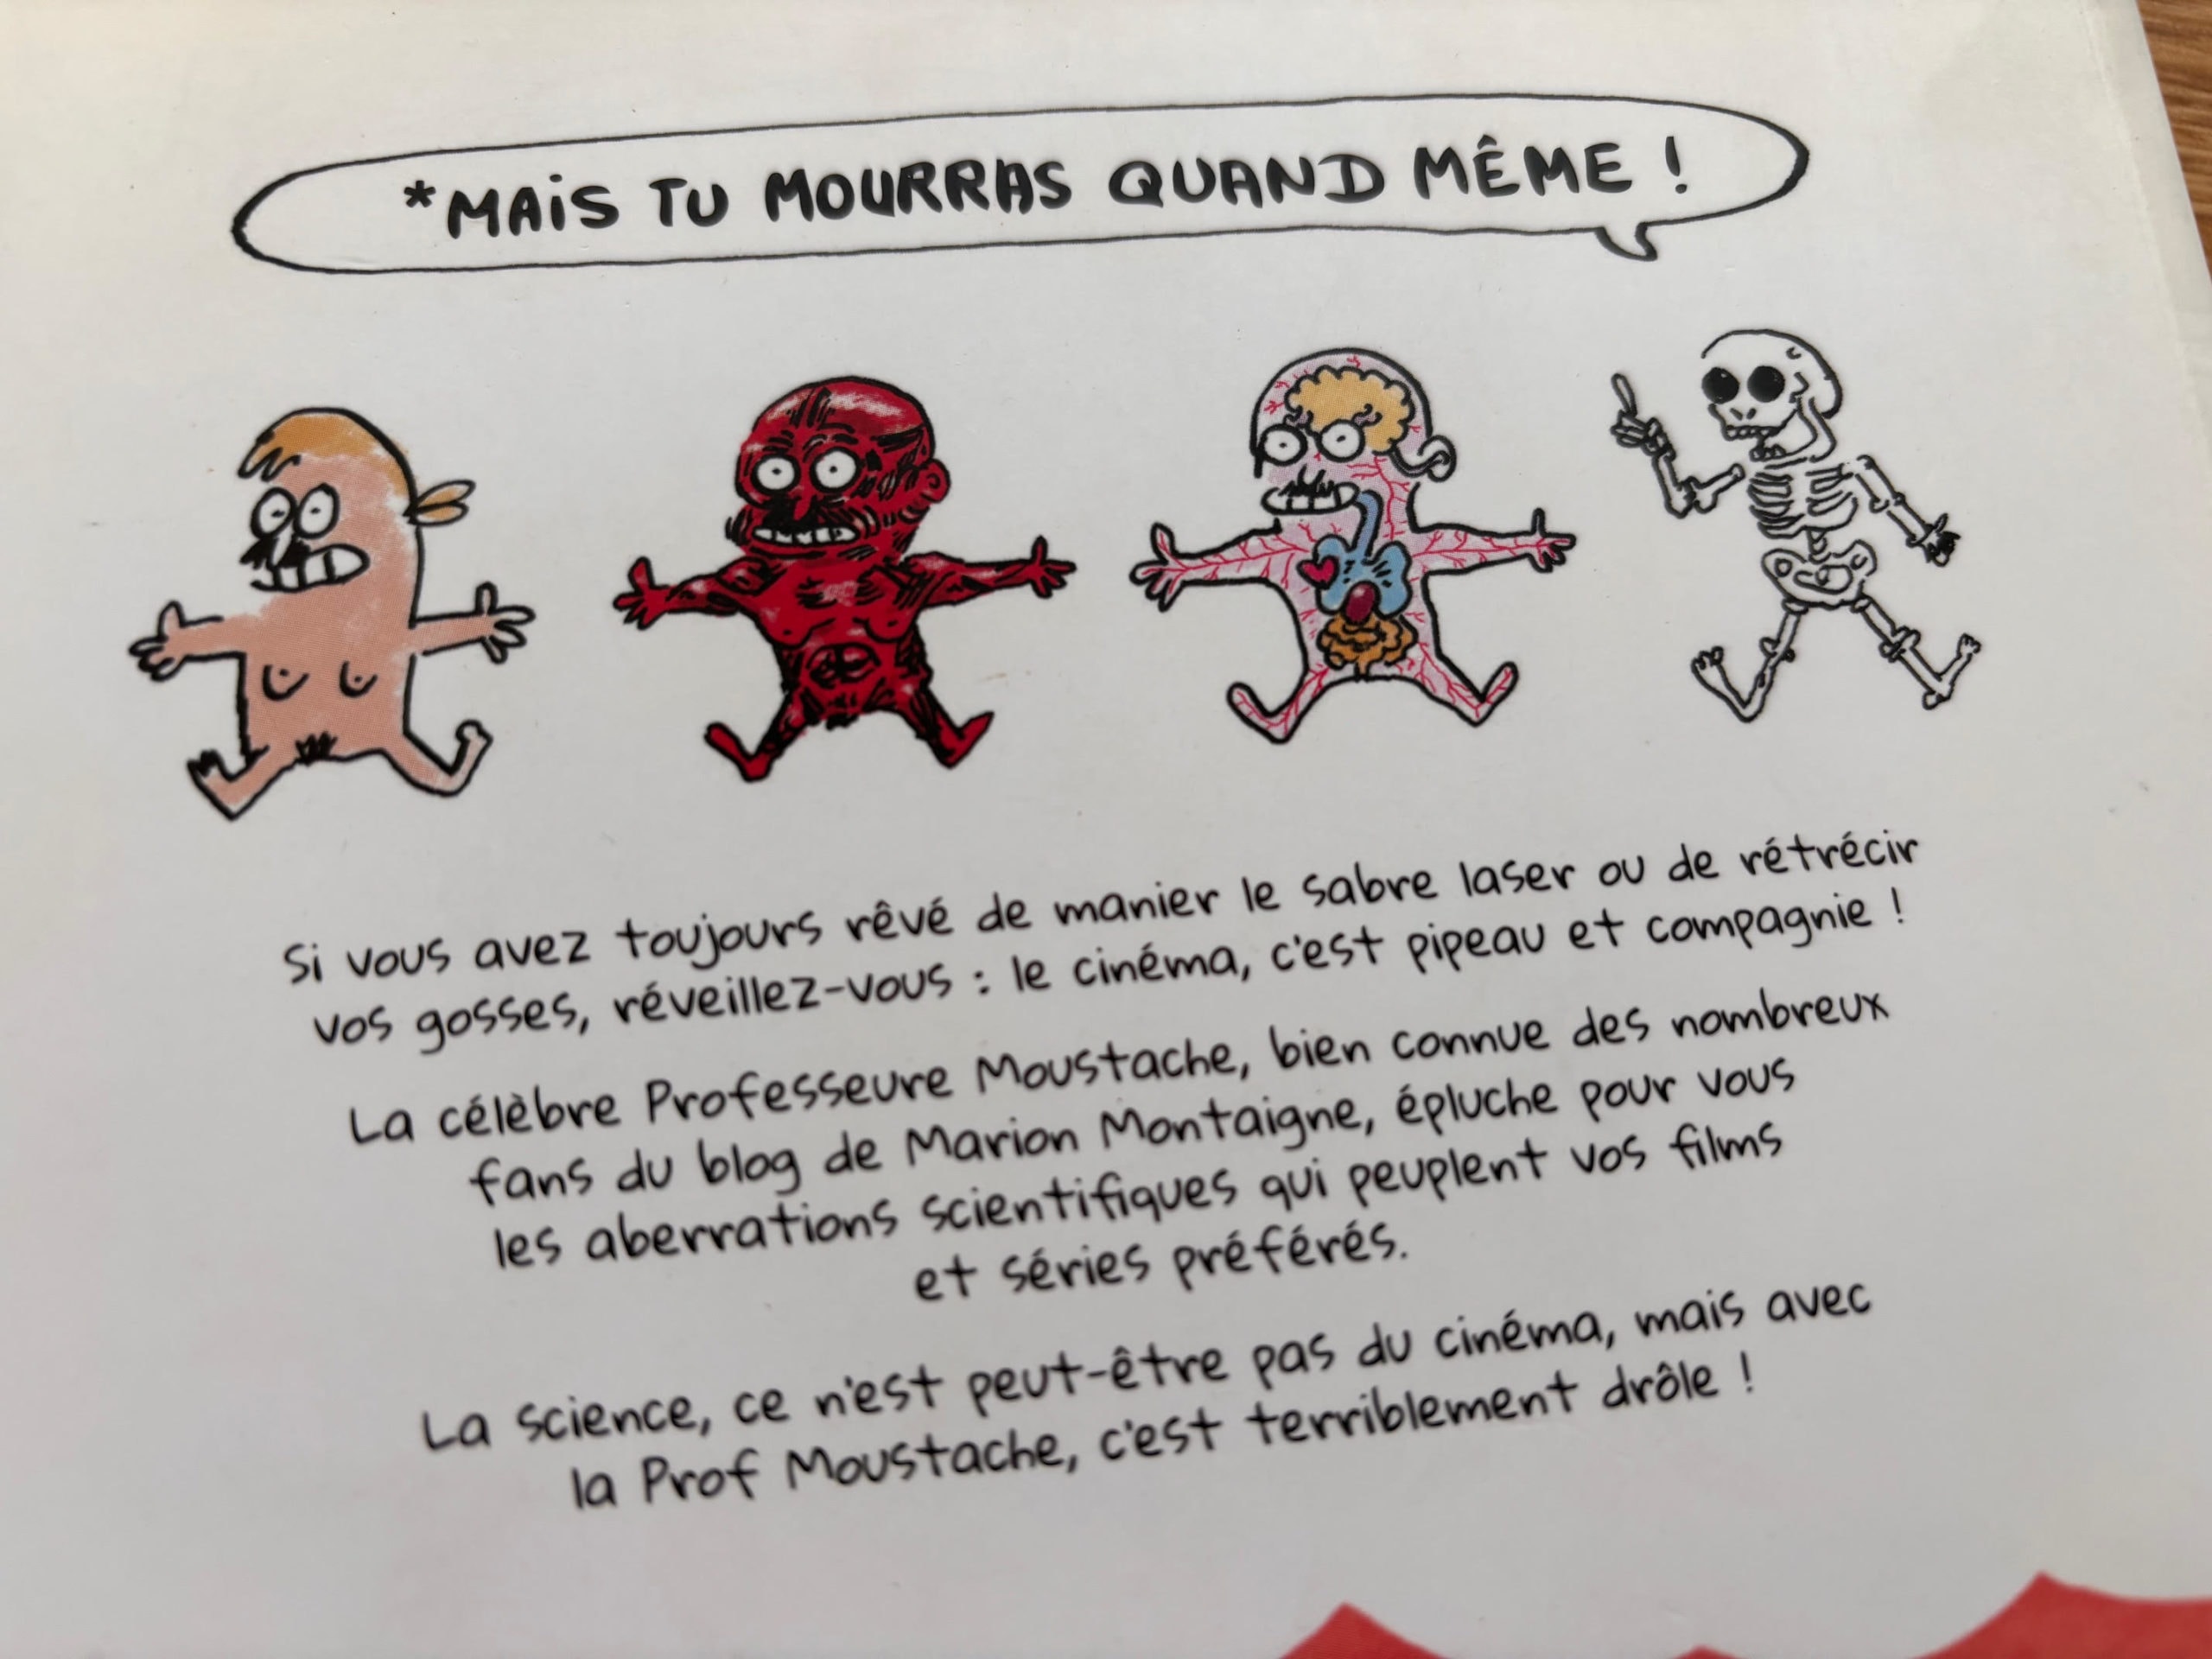 *MAiS TU MOURRAS QUAND MÊME !
Si vous avez toujours rêvé de manier le sabre laser ou de rétrécir
vos gosses, réveillez-vous : le cinéma, c'est pipeau et compagnie !
La célèbre Professeure Moustache, bien connue des nombreux
fans du blog de Marion Montaigne, épluche pour vous
les aberrations scientifiques qui peuplent vos films
et séries préférés.
La science, ce n'est peut-être pas du cinéma, mais avec
la Prof Moustache, c'est terriblement drôle !